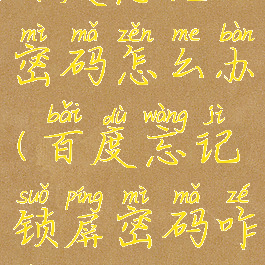 mì mǎ zěn me bàn
密码怎么办
bǎi dù wàng jì
(百度忘记
suǒ píng mì mǎ zé
锁屏密码咋